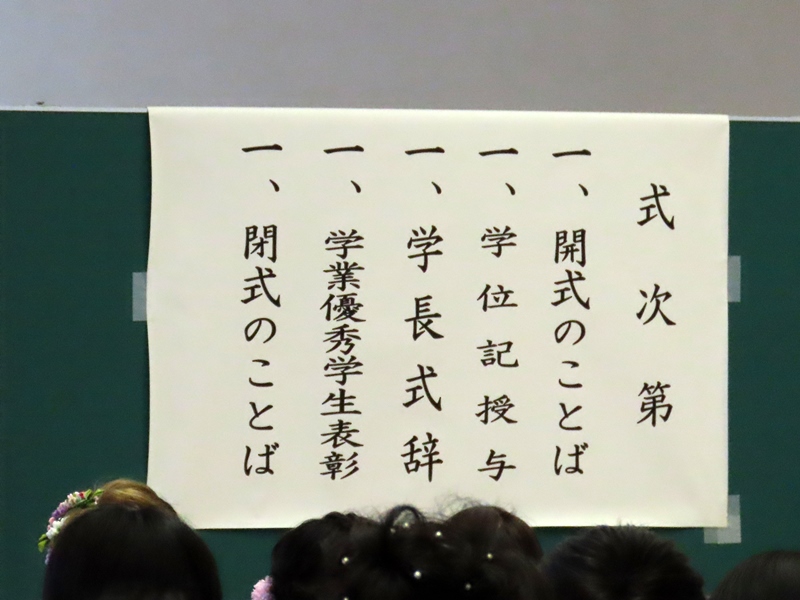 式次第
一、開式のことば
一、学位記授与
一、学長式辞
一、学業優秀学生表彰
一、閉式のことば